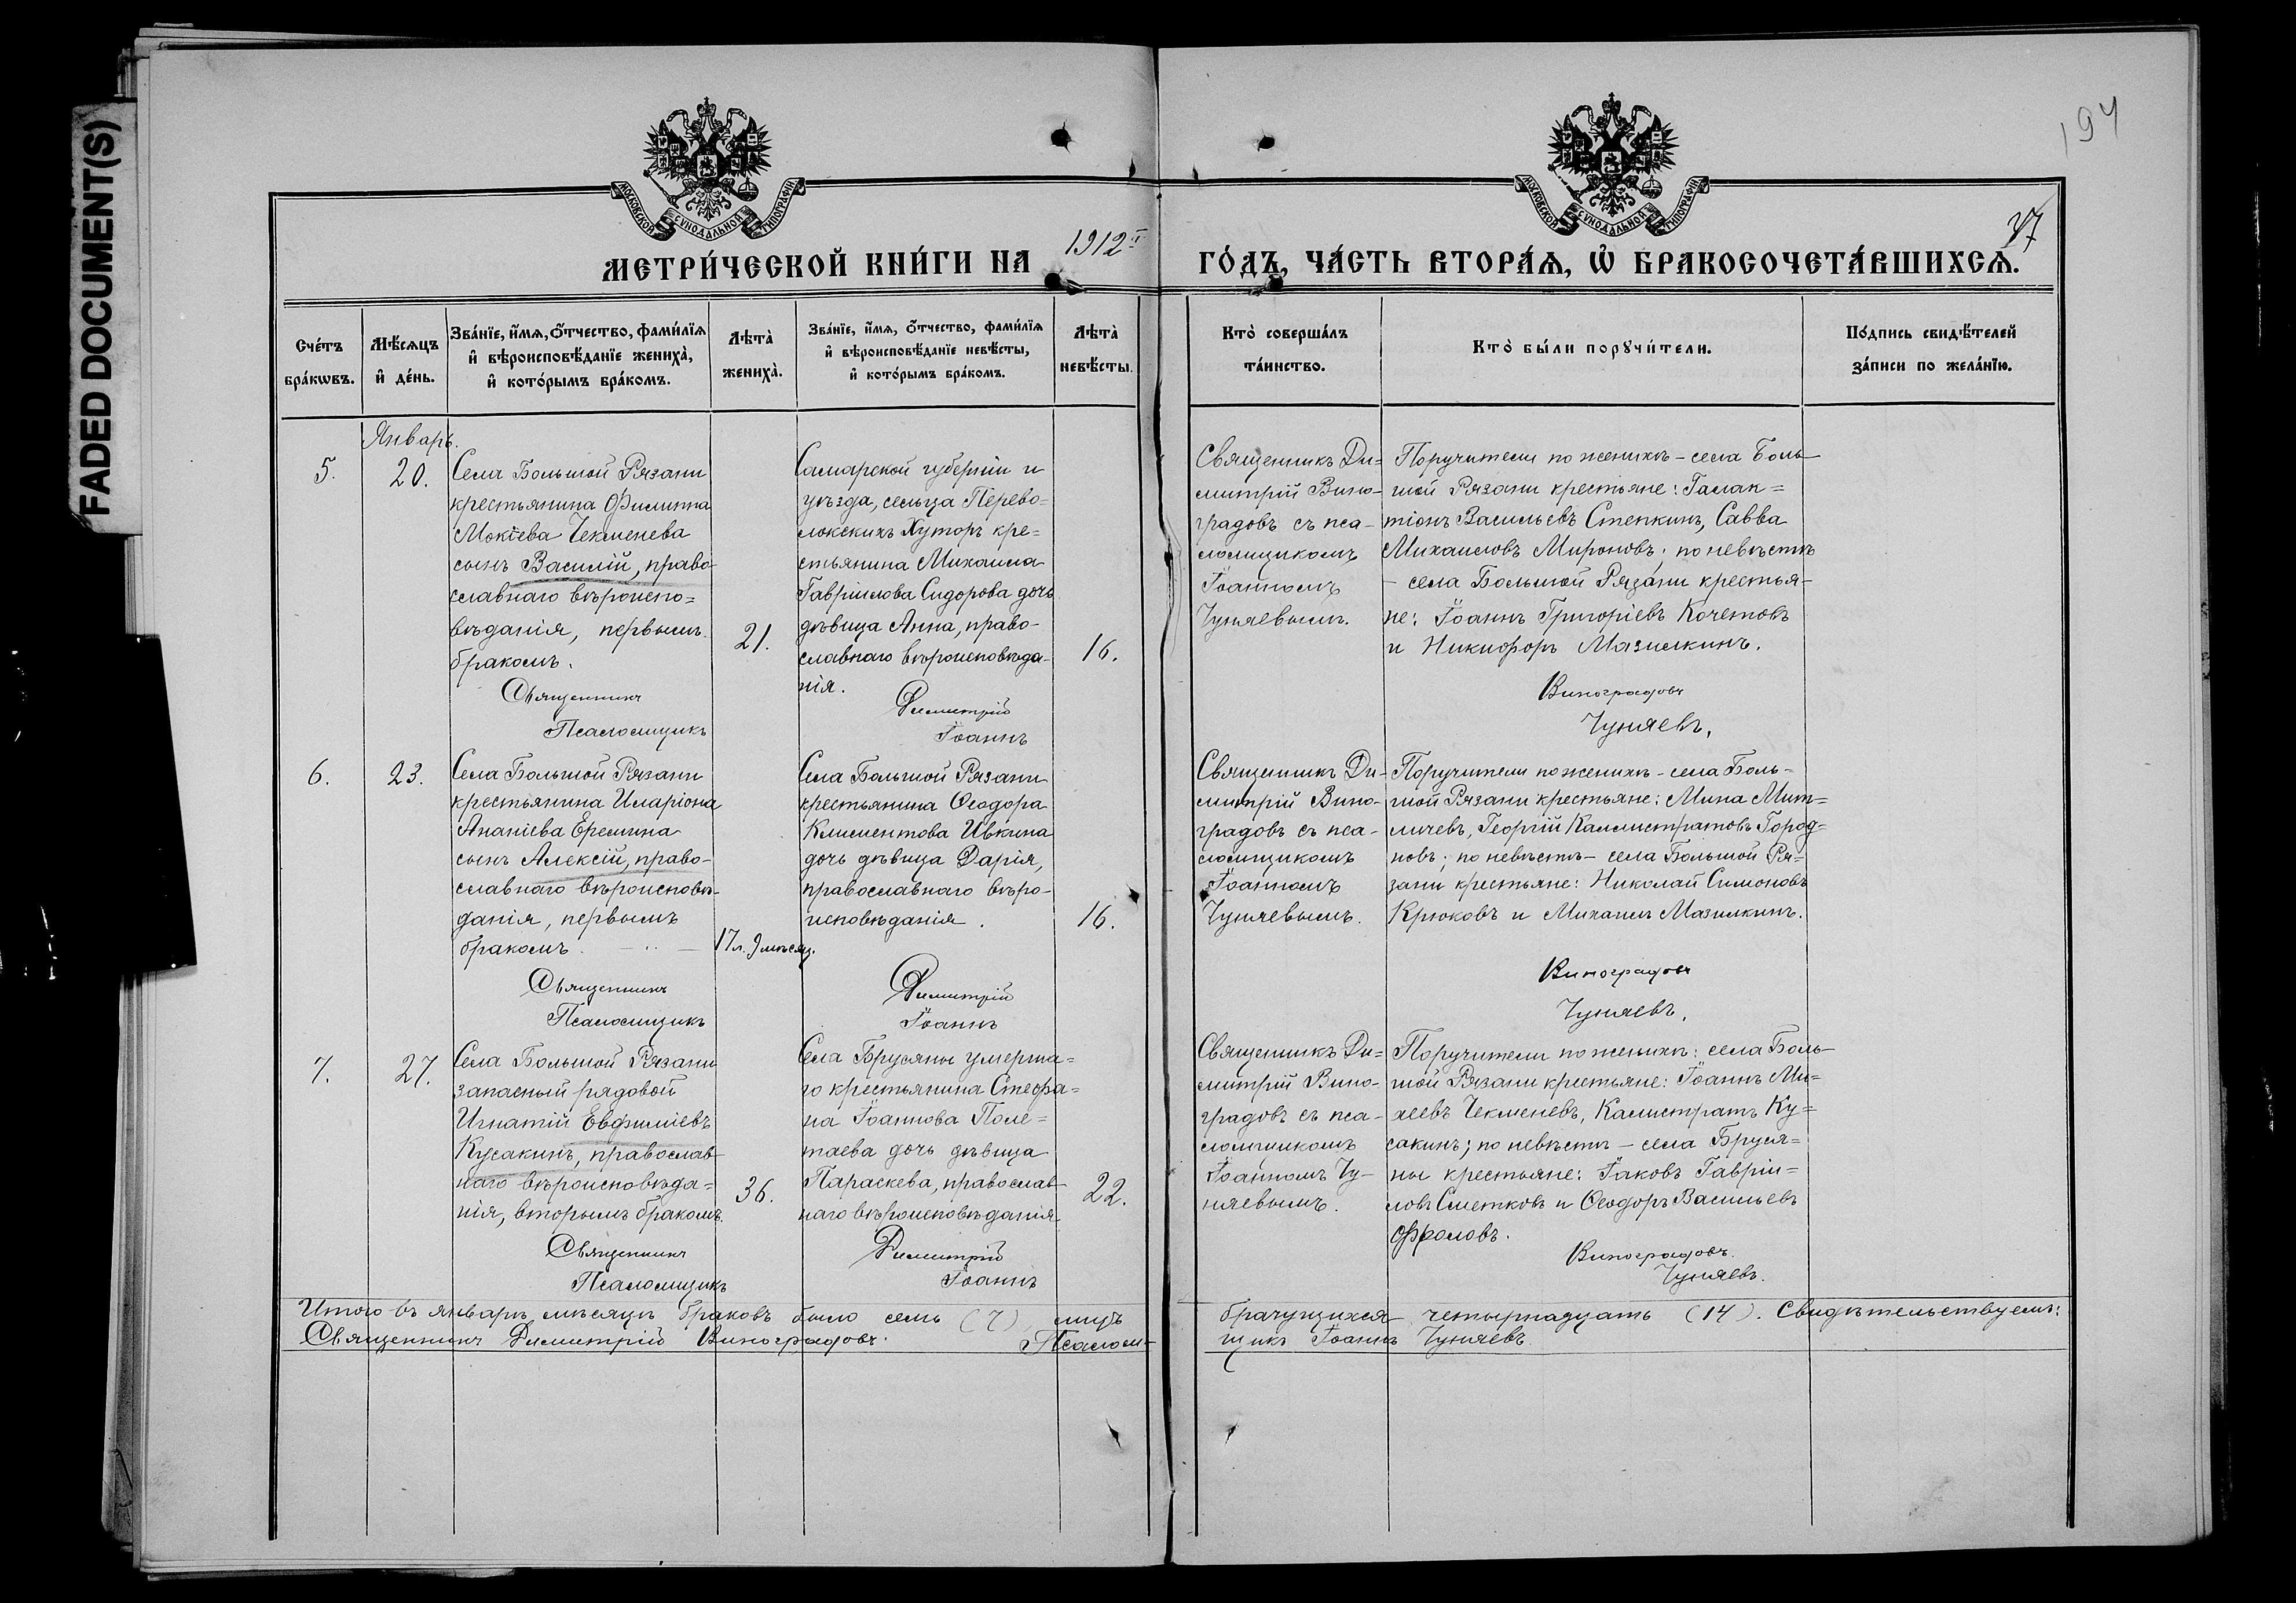 FADED DOCUMENT(S)
194
МОСКОВСКОЙ СѴНОДАЛЬНОЙ ТИПОГРАФІИ
МОСКОВСКОЙ СѴНОДАЛЬНОЙ ТИПОГРАФІИ
МЕТРИ́ЧЕСКОЙ КНИ́ГИ НА 1912 ГО́ДЪ, ЧА́СТЬ ВТОРА́Ѧ, Ѡ҆ БРАКОСОЧЕТА́ВШИХСѦ.
Сче́тъ бра́кѡвъ.
Мѣ́сѧцъ и҆ де́нь.
Зва́нїе, и҆́мѧ, ѻ҆́тчество, фами́лїѧ и҆ вѣроисповѣ́данїе жениха̀, и҆ кото́рымъ бра́комъ.
Лѣта̀ жениха̀.
Зва́нїе, и҆́мѧ, ѻ҆́тчество, фами́лїѧ и҆ вѣроисповѣ́данїе невѣ́сты, и҆ кото́рымъ бра́комъ.
Лѣта̀ невѣ́сты.
Кто̀ соверша́лъ та́инство.
Кто̀ бы́ли порꙋчи́тели.
По́дпись свидѣ́телей за́писи по жела́нїю.
Январь.
5.
20.
Села Большой Рязани
крестьянина Филиппа
Мокіева Чекменева
сынъ Василій, право-
славнаго вѣроиспо=
вѣданія, первымъ
бракомъ.
21.
Самарской губерніи и
уѣзда, сельца Перево-
локскихъ Хуторъ кре=
стьянина Михаила
Гавріилова Сидорова дочь
дѣвица Анна, право-
славнаго вѣроисповѣда-
нія.
16.
Священникъ Ди=
митрій Вино-
градовъ съ пса-
ломщикомъ
Іоанномъ
Чуняевымъ.
Поручители по женихѣ - села Боль-
шой Рязани крестьяне: Галак=
тіонъ Васильевъ Степкинъ, Савва
Михаиловъ Мироновъ; по невѣстѣ
- села Большой Рязани крестья-
не: Іоаннъ Григоріевъ Кочетовъ
и Никифоръ Мазилкинъ.
Священникъ Димитрій Виноградовъ
Псаломщикъ Іоаннъ Чуняевъ.
6.
23.
Села Большой Рязани
крестьянина Иларіона
Ананіева Еремина
сынъ Алексій, право-
славнаго вѣроисповѣ-
данія, первымъ
бракомъ.
17 л. 9 мѣсяц.
Села Большой Рязани
крестьянина Ѳеодора
Климентова Ивкина
дочь дѣвица Дарія,
православнаго вѣро-
исповѣданія.
16.
Священникъ Ди-
митрій Вино-
градовъ съ пса-
ломщикомъ
Іоанномъ
Чуняевымъ.
Поручители по женихѣ - села Боль-
шой Рязани крестьяне: Мина Мит=
личевъ, Георгій Каллистратовъ Город=
новъ; по невѣстѣ - села Большой Ря=
зани крестьяне: Николай Симоновъ
Крюковъ и Михаилъ Мазилкинъ.
Священникъ Димитрій Виноградовъ
Псаломщикъ Іоаннъ Чуняевъ.
7.
27.
Села Большой Рязани
запасный рядовой
Игнатій Евфиміевъ
Кусакинъ, православ-
наго вѣроисповѣда=
нія, вторымъ бракомъ.
36.
Села Брусяны умерша=
го крестьянина Стефа=
на Іоаннова Поле=
таева дочь дѣвица
Параскева, православ-
наго вѣроисповѣданія
22.
Священникъ Ди=
митрій Вино-
градовъ съ пса-
ломщикомъ
Іоанномъ Чу-
няевымъ.
Поручители по женихѣ: села Боль-
шой Рязани крестьяне: Іоаннъ Ми=
хеевъ Чекменевъ, Калистратъ Ку=
сакинъ; по невѣстѣ - села Бруся=
ны крестьяне: Іаковъ Гавріи=
ловъ Сметковъ и Ѳеодоръ Васильевъ
Фроловъ.
Священникъ Димитрій Виноградовъ.
Псаломщикъ Іоаннъ Чуняевъ.
Итого въ январѣ мѣсяцѣ браковъ было семь (7) лицъ брачущихся четырнадцать (14). Свидѣтельствуемъ:
Священникъ Димитрій Виноградовъ. Псалом-щикъ Іоаннъ Чуняевъ.